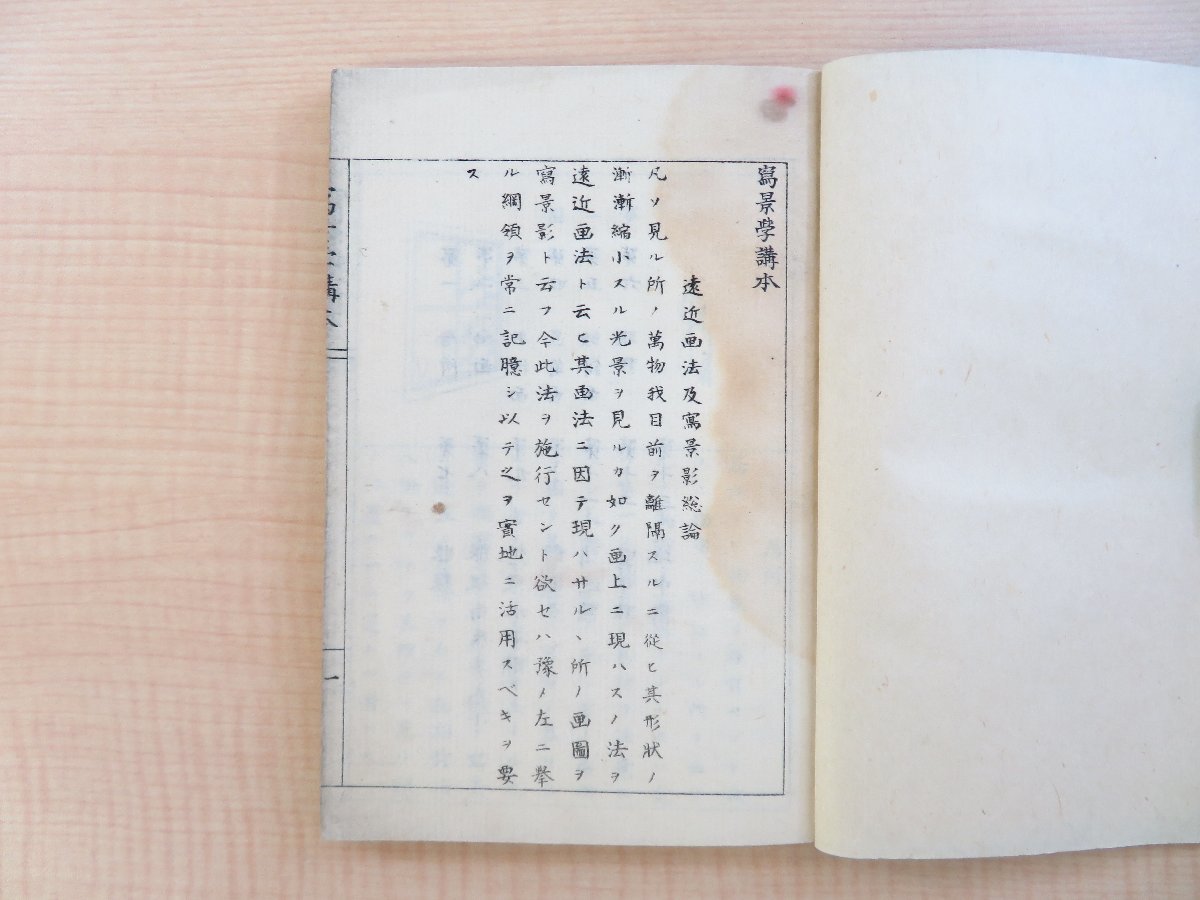 寫景學講本
遠近画法及寫景影総論
凡ソ見ル所ノ萬物我目前ヲ離隔スルニ從ヒ其形狀ノ
漸漸縮小スル光景ヲ見ルカ如ク画上ニ現ハスノ法ヲ
遠近画法ト云ヒ其画法ニ因テ現ハサルヽ所ノ画圖ヲ
寫景影ト云フ今此法ヲ施行セント欲セハ豫メ左ニ擧
ル綱領ヲ常ニ記臆シ以テ之ヲ實地ニ活用スベキヲ要
ス
一